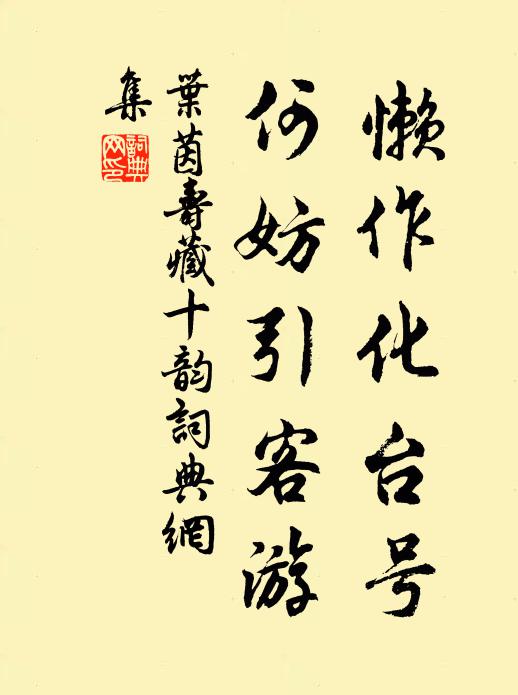 懒作化台号
何妨引客游
葉茵壽藏十韵詞典網
集
詞典網印